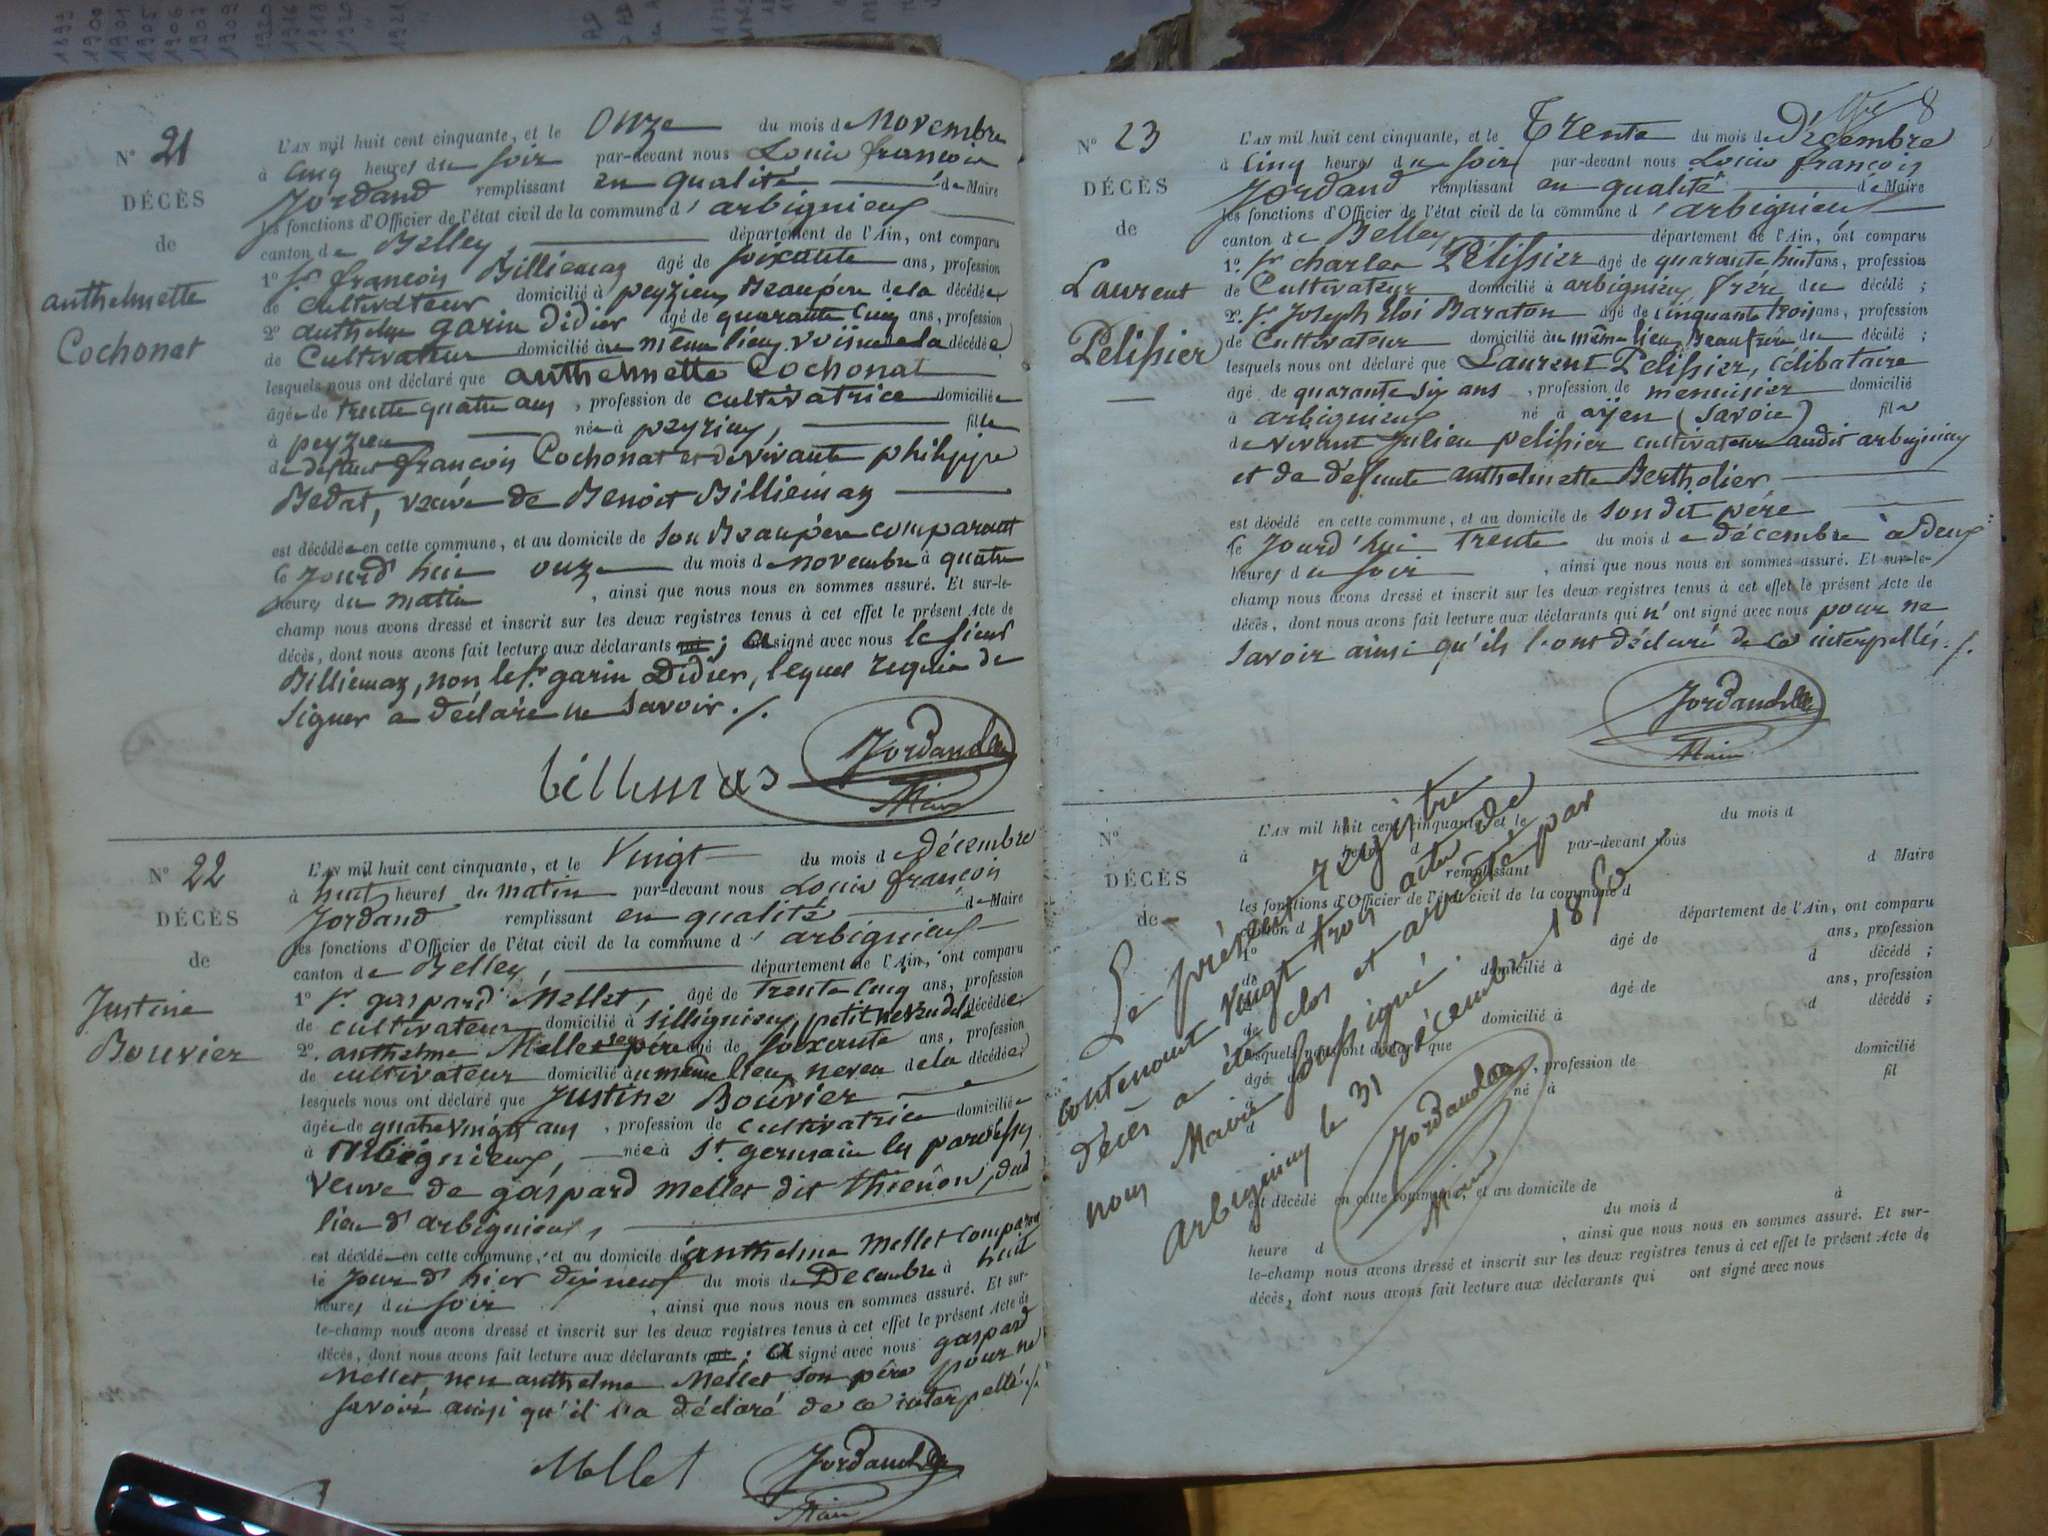 N° 21
DÉCÈS
de
anthelmette
Cochonat
L'AN mil huit cent cinquante, et le Onze du mois de Novembre
à cinq heures du soir par-devant nous Louis françois
Jordand remplissant en qualité de Maire
les fonctions d'Officier de l'état civil de la commune d'arbignieux
canton de Belley, département de l'Ain, ont comparu
1° Sr. françois Billiemaz âgé de soixante ans, profession
de cultivateur domicilié à peyzieux Beaupère de la décédée,
2° anthelme garin Didier âgé de quarante cinq ans, profession
de Cultivateur domicilié au même lieu, voisin de la décédée
lesquels nous ont déclaré que anthelmette Cochonat
âgée de trente quatre ans, profession de cultivatrice domiciliée
à peyzieu née à peyzieu, fille
de défunt françois Cochonat et de vivante philippe
Bedat, veuve de Benoit Billiemaz
est décédée en cette commune, et au domicile de son Beaupère comparant
le Jourd'hui onze du mois de novembre à quatre
heures du matin, ainsi que nous nous en sommes assuré. Et sur-le-
champ nous avons dressé et inscrit sur les deux registres tenus à cet effet le présent Acte de
décès, dont nous avons fait lecture aux déclarants qui ; a signé avec nous le sieur
Billiemaz, non le sr. garin Didier, lequel requis de
signer a déclaré ne savoir ./.
billiemas Jordand
Maire
N° 22
DÉCÈS
de
Justine
Bouvier
L'AN mil huit cent cinquante, et le Vingt du mois de décembre
à huit heures du matin par-devant nous Louis françois
Jordand remplissant en qualité de Maire
les fonctions d'Officier de l'état civil de la commune d'arbignieux
canton de Belley, département de l'Ain, ont comparu
1° Sr. gaspard Mellet, âgé de trente cinq ans, profession
de cultivateur domicilié à Sillignieu, petit neveu de la décédée
2°. anthelme Mellet père âgé de soixante ans, profession
de cultivateur domicilié au même lieu, neveu de la décédée,
lesquels nous ont déclaré que Justine Bouvier
âgée de quatre vingts ans, profession de cultivatrice domiciliée
à Arbignieux, née à St. germain les paroisses
veuve de gaspard Mellet dit thienôn, dud
lieu d'arbignieux,
est décédée en cette commune, et au domicile de anthelme Mellet comparant
le Jour d'hier dix neuf du mois de Décembre à huit
heures du soir, ainsi que nous nous en sommes assuré. Et sur-
le-champ nous avons dressé et inscrit sur les deux registres tenus à cet effet le présent Acte de
décès, dont nous avons fait lecture aux déclarants qui ; a signé avec nous gaspard
Mellet non anthelme Mellet son père pour ne
savoir ainsi qu'il l'a déclaré de ce interpellé ./.
Mellet Jordand
Maire
8
N° 23
DÉCÈS
de
Laurent
Pélissier
L'AN mil huit cent cinquante, et le Trente du mois de Décembre
à Cinq heures du soir par-devant nous Louis françois
Jordand remplissant en qualité de Maire
les fonctions d'Officier de l'état civil de la commune d'arbignieux
canton de Belley, département de l'Ain, ont comparu
1°. Sr charles Pélissier âgé de quarante huit ans, profession
de Cultivateur domicilié à arbignieu frère du décédé ;
2°. Sr. Joseph Eloi Baraton âgé de cinquante trois ans, profession
de Cultivateur domicilié au même lieu Beaufrère du décédé ;
lesquels nous ont déclaré que Laurent Pelissier, célibataire
âgé de quarante six ans, profession de menuisier domicilié
à arbignieux né à ayen (Savoie) fils
de vivant Julien pelissier cultivateur audit arbignieu
et de defunte anthelmette Bertholier
est décédé en cette commune, et au domicile de son dit père
le Jourd'hui trente du mois de décembre à deux
heures du soir, ainsi que nous nous en sommes assuré. Et sur-le-
champ nous avons dressé et inscrit sur les deux registres tenus à cet effet le présent Acte de
décès, dont nous avons fait lecture aux déclarants qui n'ont signé avec nous pour ne
savoir ainsi qu'ils l'ont déclaré de ce interpellés ./.
Jordand
Maire
N°
DÉCÈS
de
L'AN mil huit cent cinquante, et le du mois d
à heure d par-devant nous
remplissant d Maire
les fonctions d'Officier de l'état civil de la commune d
canton d département de l'Ain, ont comparu
1° âgé de ans, profession
de domicilié à d décédé ;
2° âgé de ans, profession
de domicilié à d décédé ;
lesquels nous ont déclaré que
âgé de, profession de domicilié
à né à fil
d
est décédé en cette commune, et au domicile de
l du mois d à
heure d, ainsi que nous nous en sommes assuré. Et sur-
le-champ nous avons dressé et inscrit sur les deux registres tenus à cet effet le présent Acte de
décès, dont nous avons fait lecture aux déclarants qui ont signé avec nous
Le présent registre
contenant vingt trois actes de
décès a été clos et arrêté par
nous Maire soussigné.
Arbignieu le 31 décembre 1850
Jordand
Maire